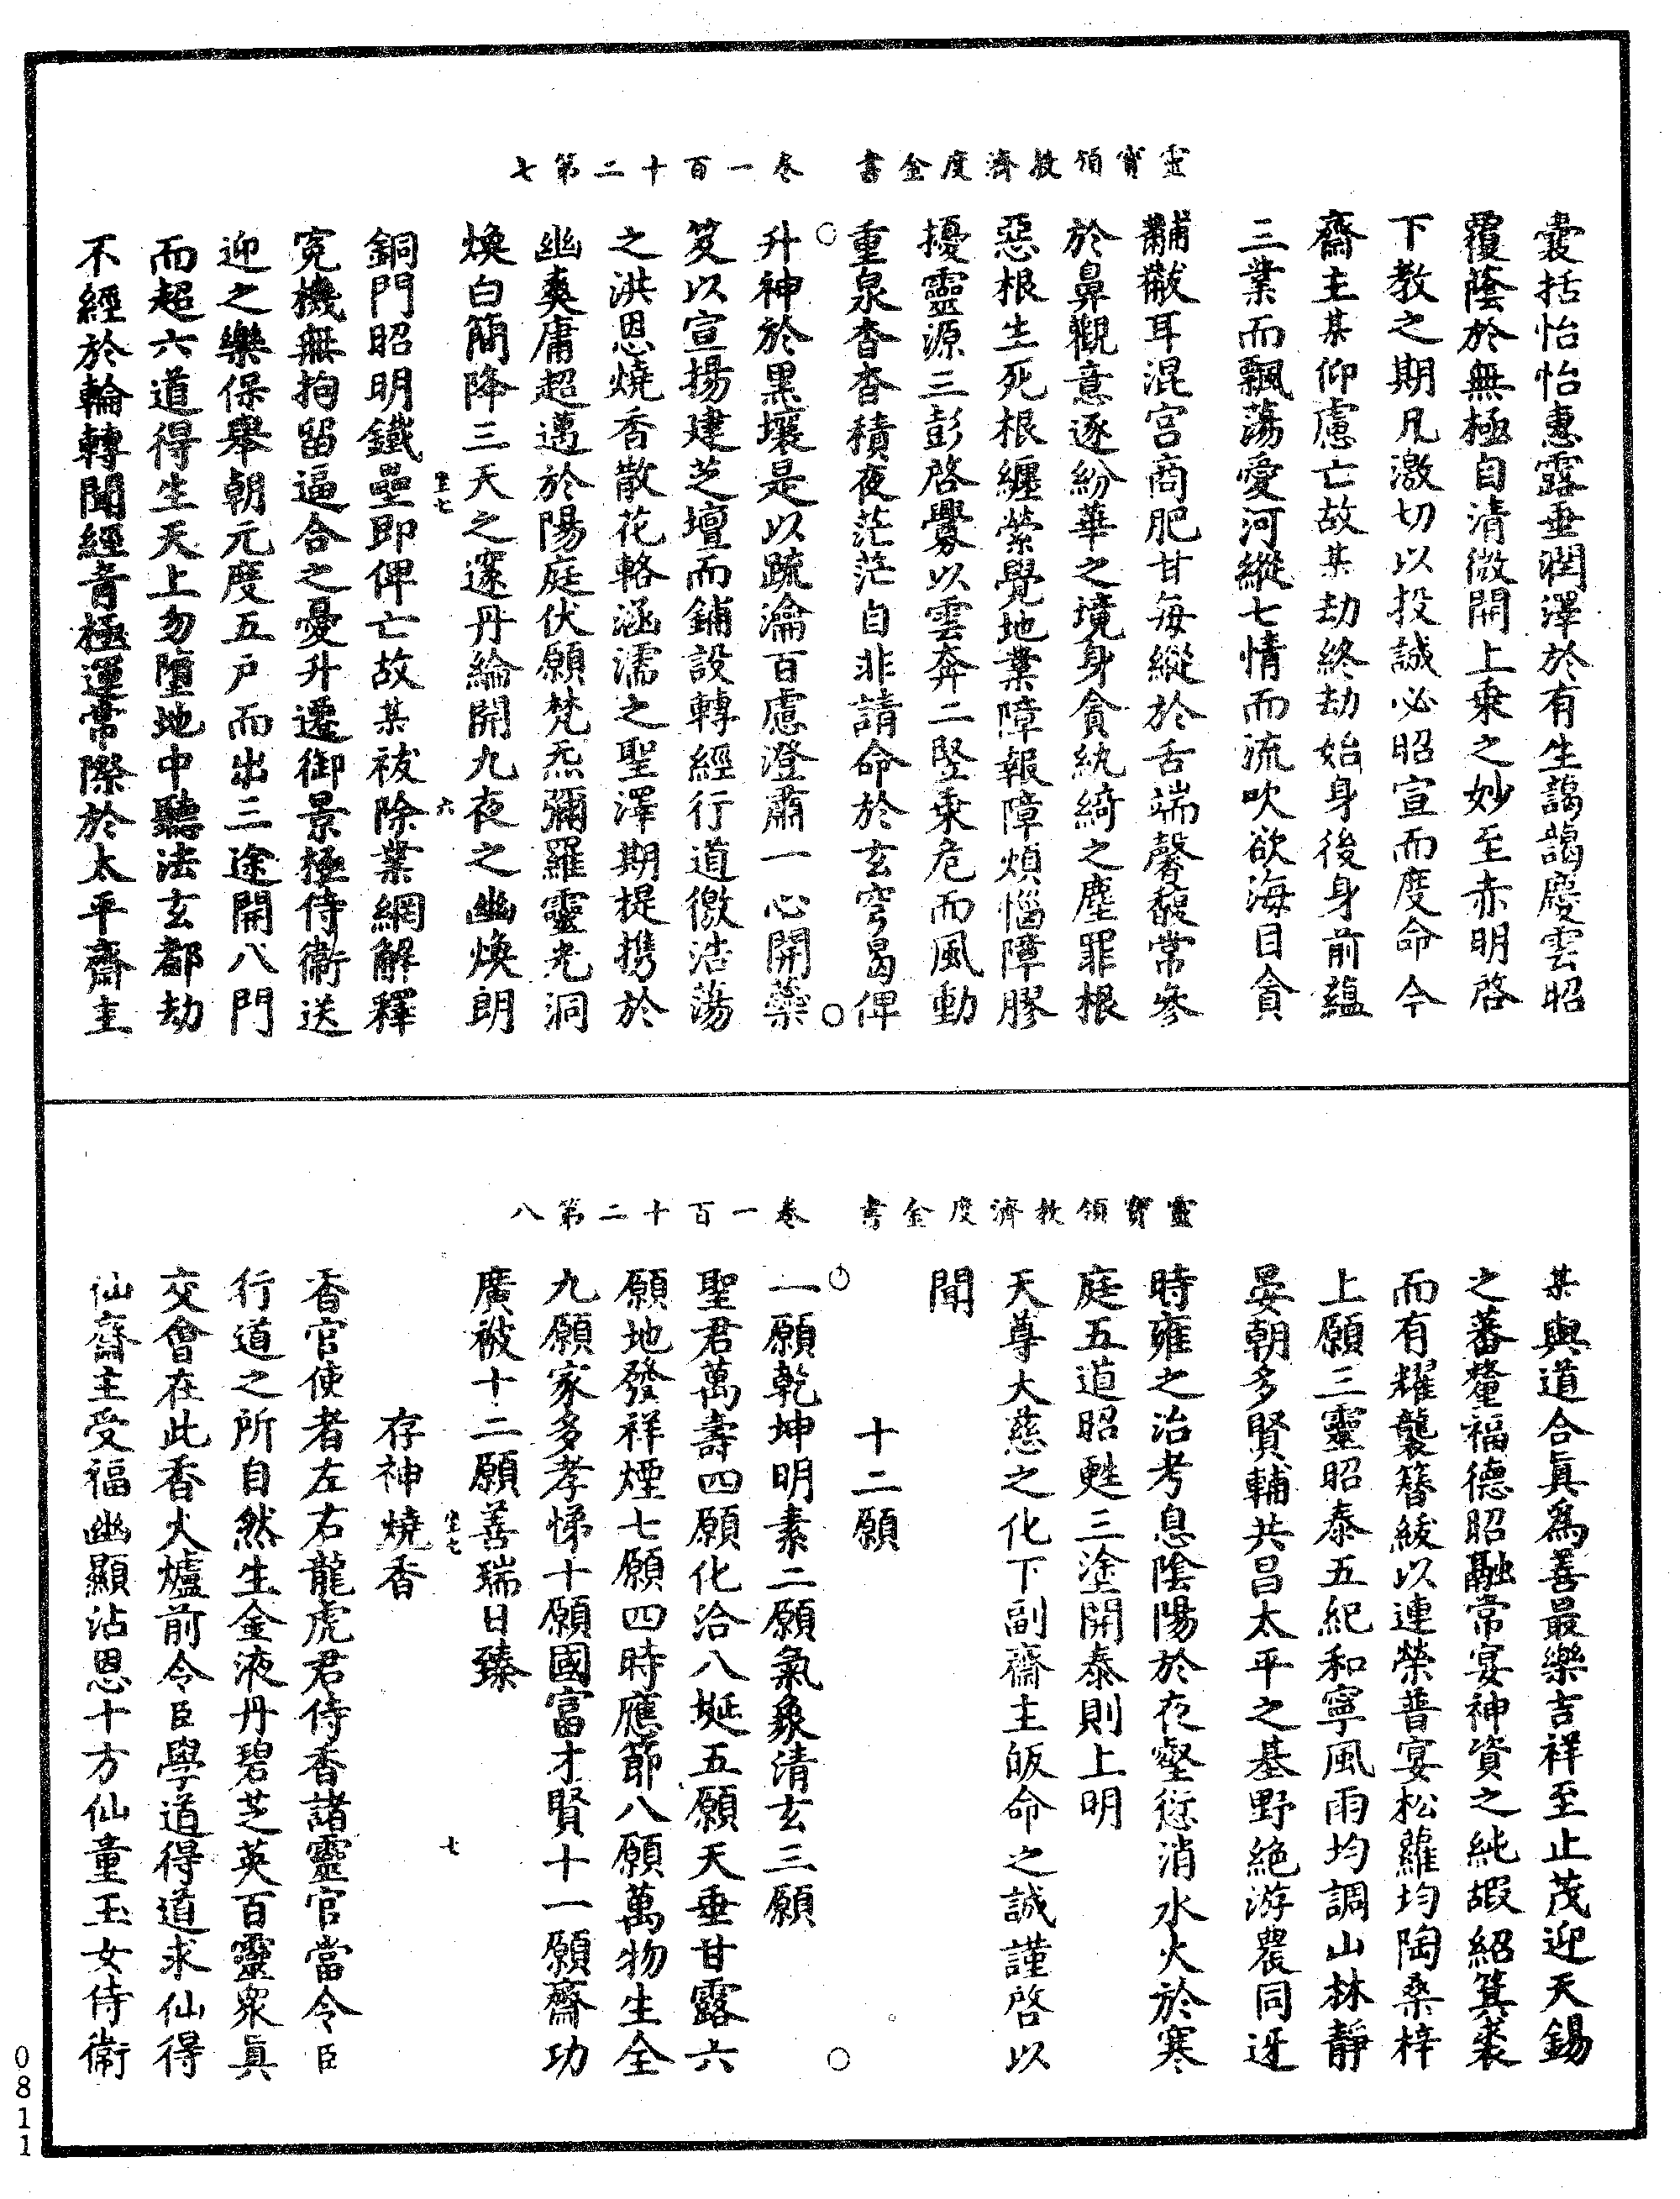 靈寶領教濟度金書　卷一百二十第七
囊括怡怡惠露垂潤澤於有生藹藹慶雲昭
覆蔭於無極自清微開上乘之妙至赤明啓
下教之期凡激切以投誠必昭宣而度命今
齋主某仰慮亡故某劫終劫始身後身前蘊
三業而飄蕩愛河縱七情而流吹欲海目貪
黼黻耳混宮商肥甘每縱於舌端馨馥常參
於鼻觀意逐紛華之境身貪紈綺之塵罪根
惡根生死根纏縈覺地業障報障煩惱障膠
擾靈源三彭啓釁以雲奔二竪乘危而風動
重泉杳杳積夜茫茫自非請命於玄穹曷俾
升神於黑壤是以䟽瀹百慮澄肅一心開蘂
笈以宣揚建芝壇而鋪設轉經行道徼浩蕩
之洪恩燒香散花輅涵濡之聖澤期提携於
幽爽庸超邁於陽庭伏願梵炁彌羅靈光洞
煥白簡降三天之邃丹綸開九夜之幽煥朗
銅門昭明鐵壘即俾亡故某袚除業網解釋
寃機無拘留逼合之憂升遷御景極侍衞送
迎之樂保舉朝元度五戶而出三途開八門
而超六道得生天上勿墮地中聽法玄都劫
不經於輪轉聞經音極運常際於太平齋主
靈寶領教濟度金書　卷一百二十第八
某與道合眞爲善最樂吉祥至止茂迎天錫
之蕃釐福德昭融常宴神資之純嘏紹箕裘
而有耀襲簪紱以連榮普宴松蘿均陶桑梓
上願三靈昭泰五紀和寧風雨均調山林靜
晏朝多賢輔共昌太平之基野絶游農同迓
時雍之治考息陰陽於夜壑愆消水火於寒
庭五道昭甦三塗開泰則上明
天尊大慈之化下副齋主皈命之誠謹啓以
聞
十二願
一願乾坤明素二願氣象清玄三願
聖君萬壽四願化洽八埏五願天垂甘露六
願地發祥煙七願四時應節八願萬物生全
九願家多孝悌十願國富才賢十一願齋功
廣被十二願善瑞日臻
存神燒香
香官使者左右龍虎君侍香諸靈官當令臣
行道之所自然生金液丹碧芝英百靈衆眞
交會在此香火爐前令臣學道得道求仙得
仙齋主受福幽顯沾恩十方仙童玉女侍衞
0811